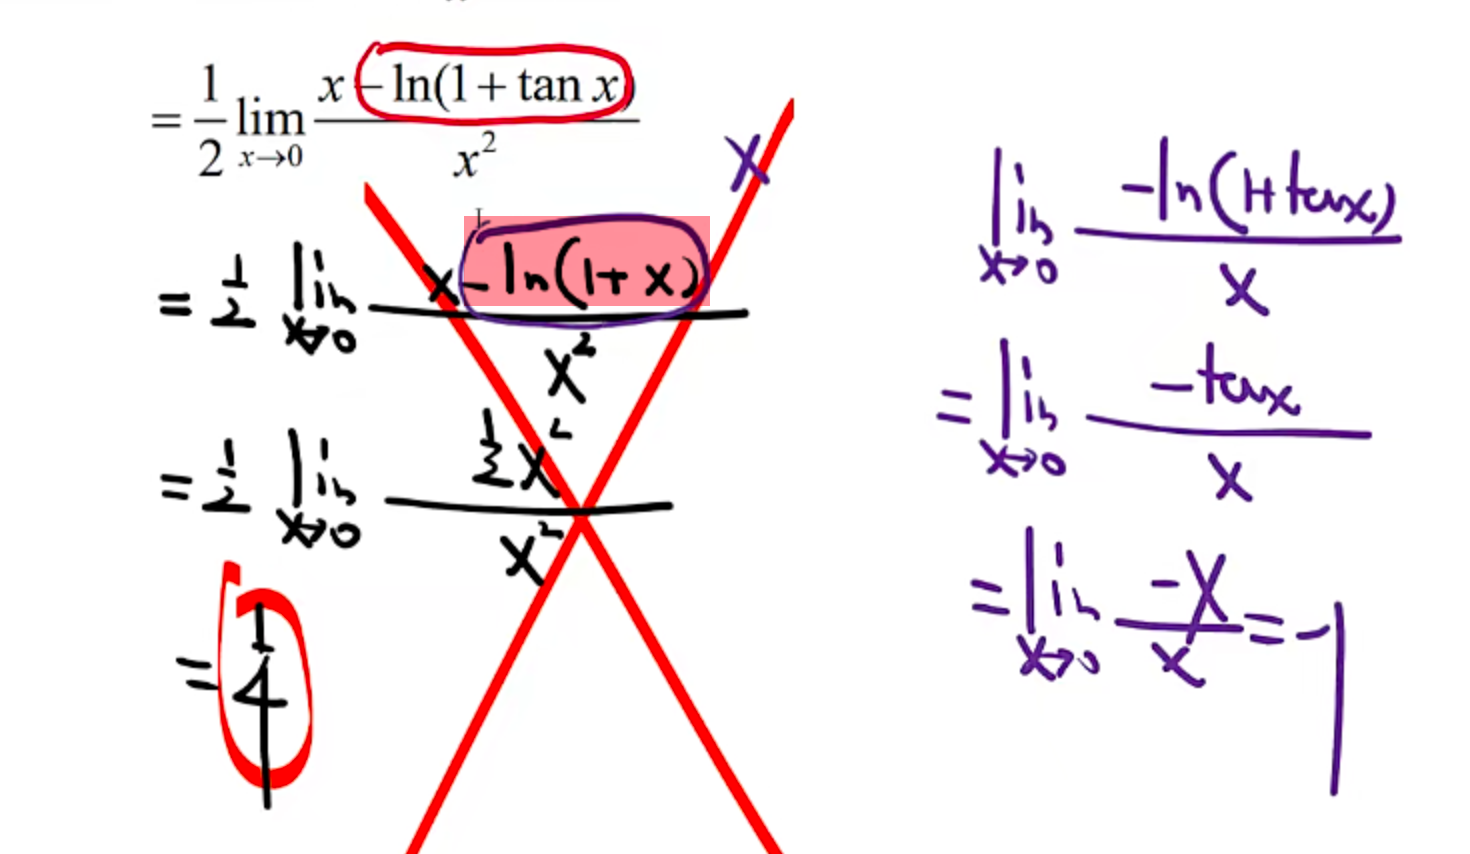 = 1/2 lim x→0 (x − ln(1 + tan x)) / x²
X
= 1/2 lim x→0 (x − ln(1 + x)) / x²
= 1/2 lim x→0 (1/2 x²) / x²
= 1/4
lim x→0 (−ln(1+tanx)) / x
= lim x→0 (−tanx) / x
= lim x→0 (−x) / x = −1